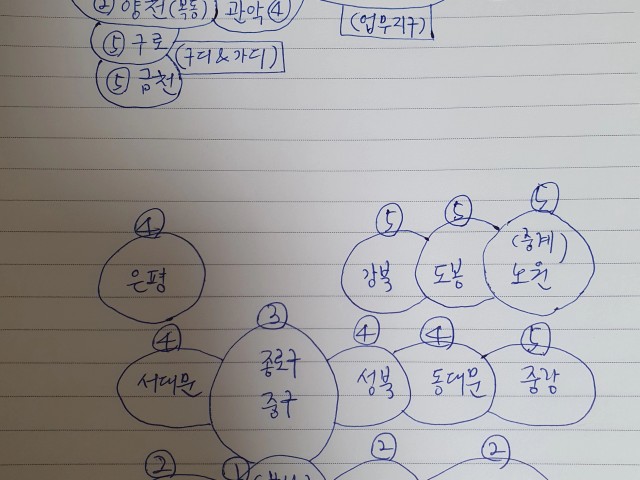 ② 양천(목동) 관악④
(업무지구)
⑤ 구로
(구디&가디)
⑤ 금천
④ ⑤ ⑤ ⑤
은평 강북 도봉 (중계)
노원
④ ③ ④ ④ ⑤
서대문 종로구 성북 동대문 중랑
중구
② ① ② ②